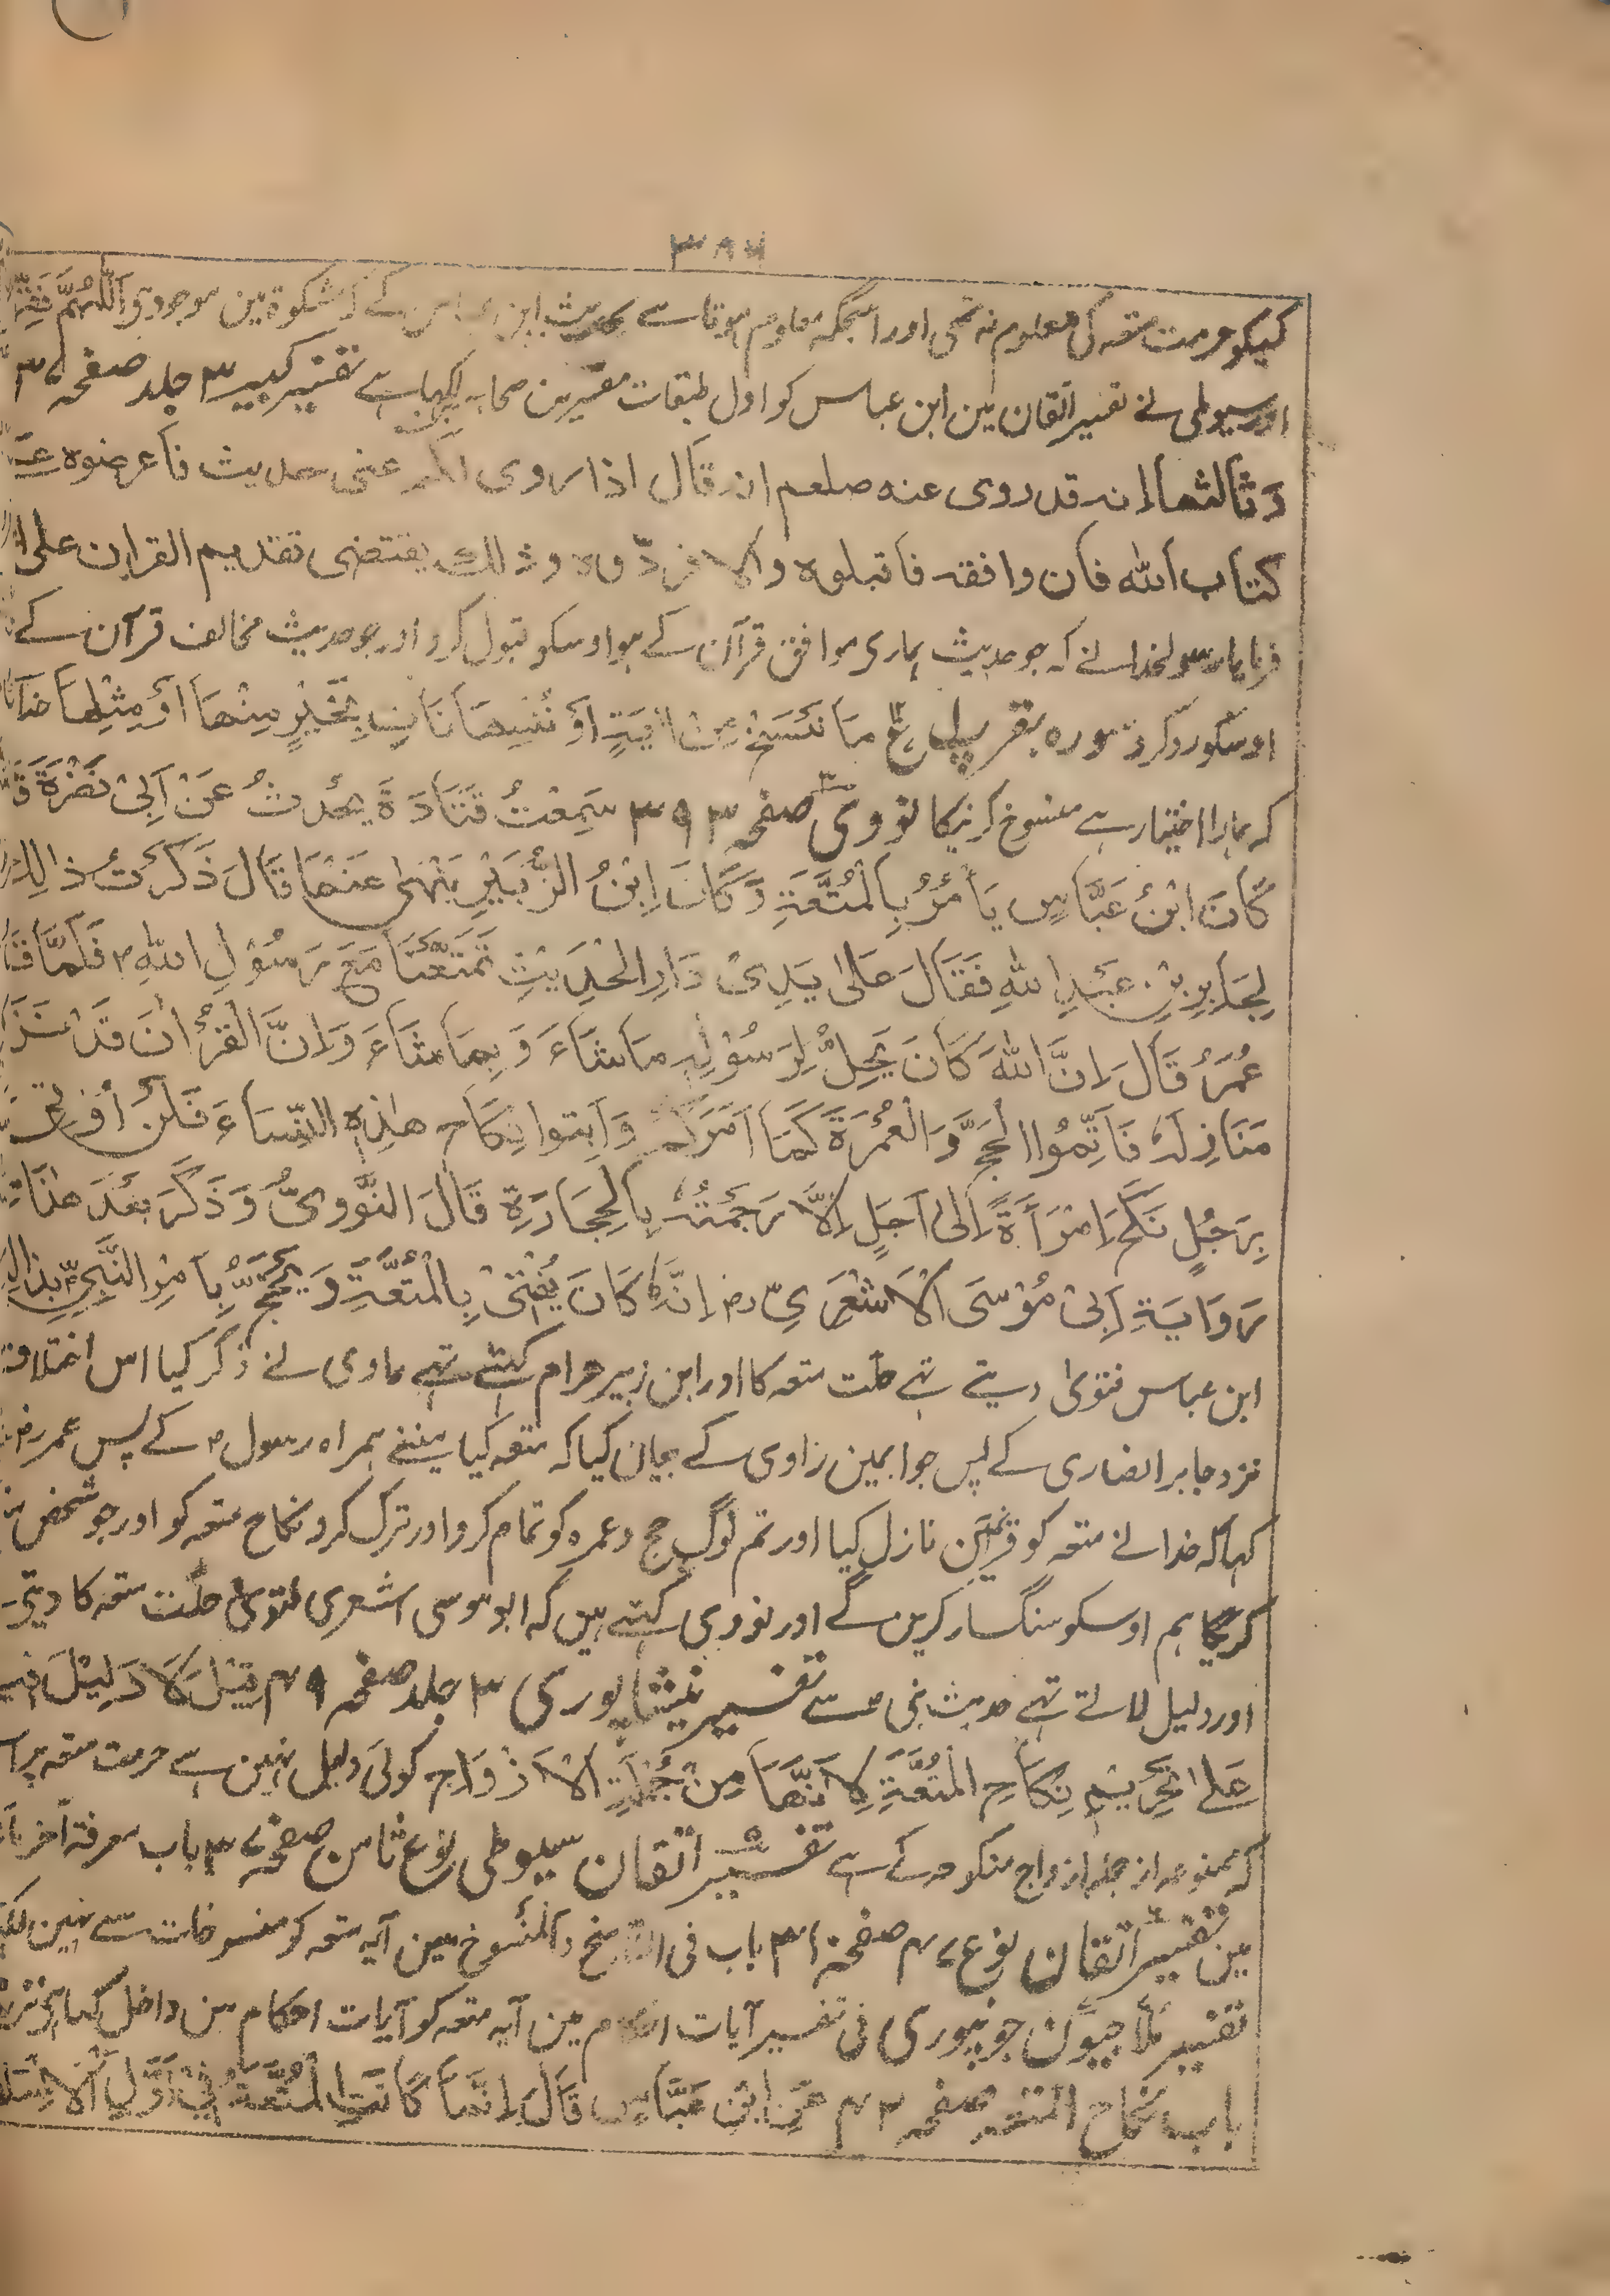 ۳۸۶
کیکو حرمت متعہ کی معلوم نہ تھی اور اسجگہ معلوم ہوتا ہے حدیث ابن عباس کے مشکوۃ مین موجود ہی اَللّٰہُمَّ فَقِّہْ
اور سیوطی نے تفسیر اتقان مین ابن عباس کو اول طبقات مفسرین صحابہ لکہا ہے تفسیر کبیر ۳ جلد صفحہ
وثالثها انه قد روی عنه صلعم انه قال اذا روی لکم عنی حدیث فاعرضوه
کتاب الله فان وافقه فاقبلوه والا فردّوه وذلك یقتضی تقدیم القران علی
فرمایا رسولخدا نے کہ جو حدیث ہماری موافق قرآن کے ہو اوسکو قبول کرو اور جو حدیث مخالف قرآن کے
اوسکو رد کرو سورہ بقر مَا نَنْسَخْ مِنْ اٰیَةٍ اَوْ نُنْسِهَا نَاْتِ بِخَیْرٍ مِنْهَا اَوْ مِثْلِهَا
کہ ہمارا اختیار ہے منسوخ کرنیکا نووی صفحہ ۳۹۳ سَمِعْتُ قَتَادَةَ یُحَدِّثُ عَنْ اَبِیْ نَضْرَةَ
كَانَ ابْنُ عَبَّاسٍ یَأْمُرُ بِالْمُتْعَةِ وَكَانَ ابْنُ الزُّبَیْرِ یَنْهٰی عَنْهَا قَالَ ذَكَرْتُ ذَالِكَ
لِجَابِرِ بْنِ عَبْدِ اللّٰهِ فَقَالَ عَلٰی یَدِیْ دَارِ الْحَدِیْثِ تَمَتَّعْنَا مَعَ رَسُوْلِ اللّٰهِ ؐ فَلَمَّا
عُمَرُ قَالَ اِنَّ اللّٰهَ كَانَ یُحِلُّ لِرَسُوْلِهٖ مَا شَاءَ وَبِمَا شَاءَ وَاِنَّ الْقُرْاٰنَ قَدْ نَزَلَ
مَنَازِلَهٗ فَاَتِمُّوا الْحَجَّ وَالْعُمْرَةَ كَمَا اَمَرَكُمْ وَاَبِتُّوا نِكَاحَ هٰذِهِ النِّسَاءِ فَلَنْ اُوْتٰی
بِرَجُلٍ نَكَحَ امْرَأَةً اِلٰی اَجَلٍ اِلَّا رَجَمْتُهٗ بِالْحِجَارَةِ قَالَ النَّوَوِیُّ وَذَكَرَ بَعْدَ هٰذَا
رِوَایَةِ اَبِیْ مُوْسَی الْاَشْعَرِیِّ رض اِنَّهٗ كَانَ یُفْتِیْ بِالْمُتْعَةِ وَیَحْتَجُّ بِاَمْرِ النَّبِیِّ بِذَالِكَ
ابن عباس فتویٰ دیتے تہے حلّت متعہ کا اور ابن زبیر حرام کہتے تہے راوی نے ذکر کیا اس اختلاف
نزد جابر انصاری کے پس جوابمین راوی کے بیان کیا کہ متعہ کیا ہمنے ہمراہ رسول ؐ کے پس عمر رض
کہا کہ خدا نے متعہ کو قرآنمین نازل کیا اور تم لوگ حج و عمرہ کو تمام کرو اور ترک کرو نکاح متعہ کو اور جو شخص
کریگا ہم اوسکو سنگسار کرین گے اور نووی کہتے ہین کہ ابو موسی اشعری فتوی حلّت متعہ کا دیتے
اور دلیل لاتے تہے حدیث نبی سے تفسیر نیشاپوری ۳ جلد صفحہ قِیْلَ لَا دَلِیْلَ
عَلٰی تَحْرِیْمِ نِكَاحِ الْمُتْعَةِ لِاَنَّهَا مِنْ جُمْلَةِ الْاَزْوَاجِ کوئی دلیل نہین ہے حرمت متعہ پر
کہ ممتوعہ از جملہ ازواج منکوحہ کے ہے تفسیر اتقان سیوطی نوع ثامن صفحہ باب معرفة
مین تفسیر اتقان نوع ۴۷ صفحہ باب فی الناسخ والمنسوخ مین آیہ متعہ کو منسوخات سے نہین
تفسیر ملّا جیون جونپوری فی تفسیر آیات احکام مین آیہ متعہ کو آیات احکام مین داخل کیا ہے
باب نکاح المتعہ صفحہ عَنِ ابْنِ عَبَّاسٍ قَالَ اِنَّمَا كَانَتِ الْمُتْعَةُ فِیْ اَوَّلِ